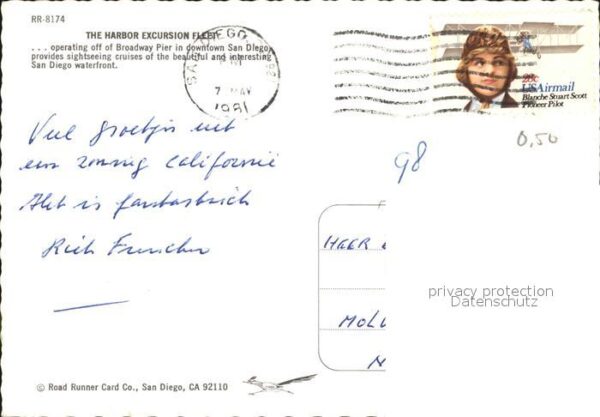 RR-8174
THE HARBOR EXCURSION FLEET
. . . operating off of Broadway Pier in downtown San Diego,
provides sightseeing cruises of the beautiful and interesting
San Diego waterfront.
SAN DIEGO
7 MAY
1981
28c
USAirmail
Blanche Stuart Scott
Pioneer Pilot
0,50
98
Veel groetjes uit
een zonnig Californië
Het is fantastisch
HEER
MOL
privacy protection
Datenschutz
© Road Runner Card Co., San Diego, CA 92110